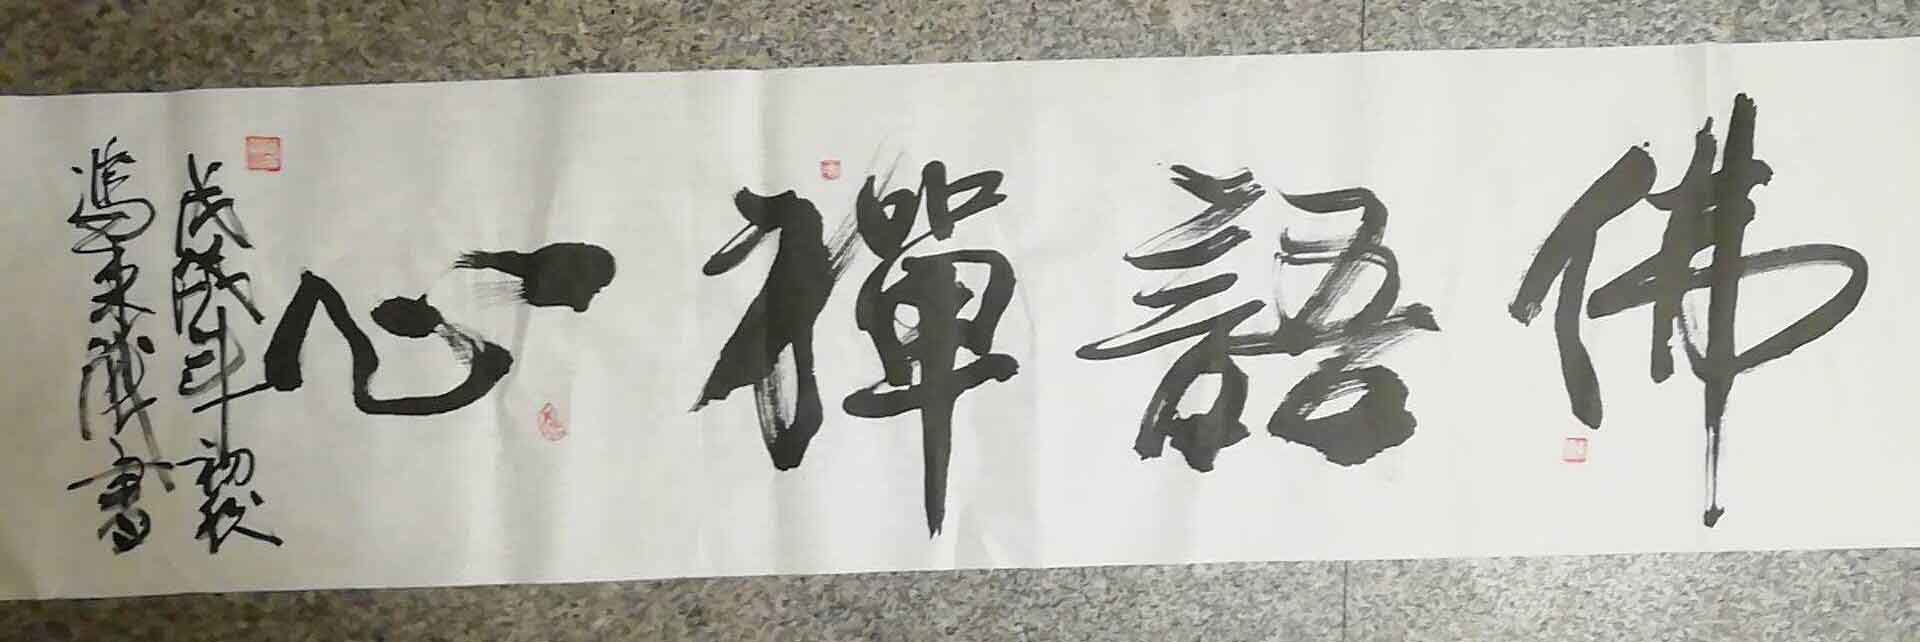 佛語禪心
戊戌年初秋
馮東書